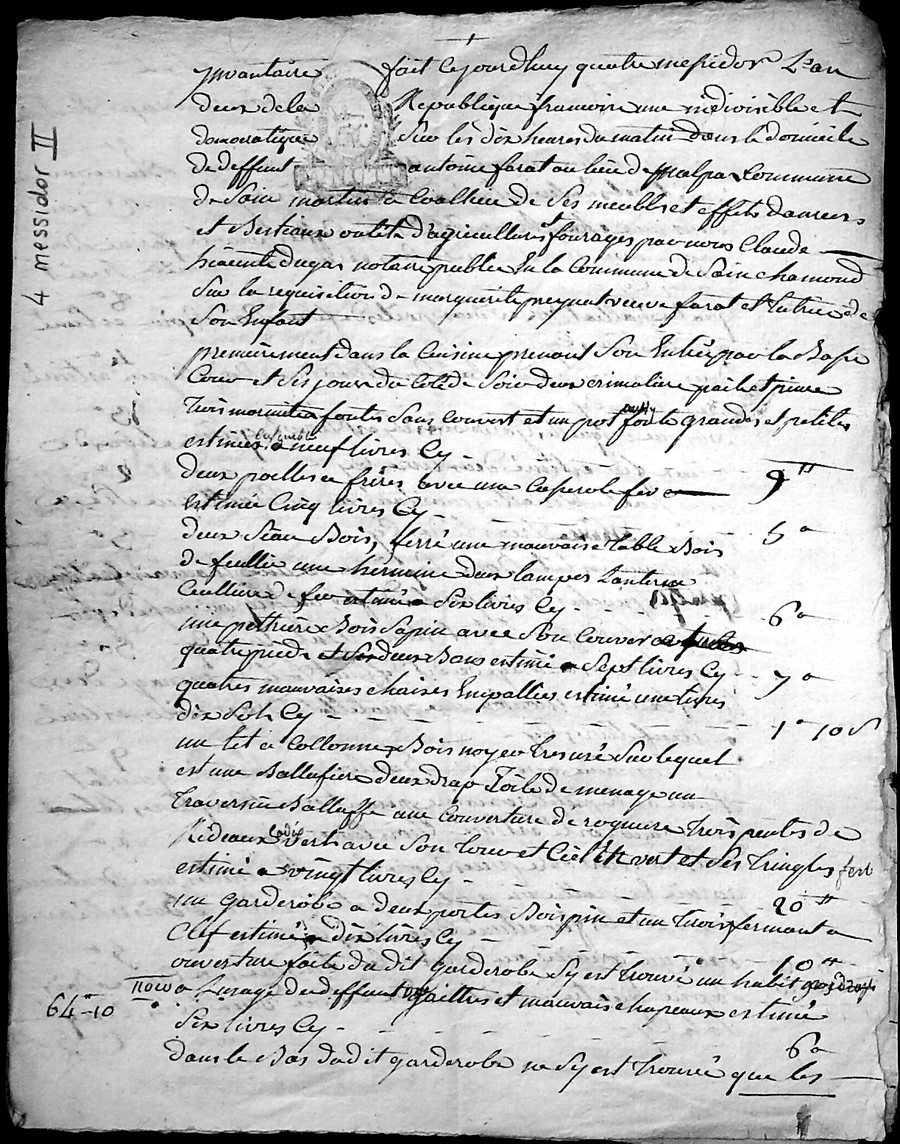 4 messidor II
ynvantaire fait cejourdhuy quatre mesidor L'an
deux de la Republique francoise une indivisible et
democratique sur les dix heures du matin dans le domicile
de deffunt antoine farat au lieu de malpas Commune
de Sain martin a Coallieu de Ses meubles et effets danrees
et Bestiaux outils d'agriculture et fourages par nous Claude
hiacinte dugas notaire public En la Commune de Sain chamond
Sur la requisition de marguerite veuve farat et tutrice de
Son Enfant
premierement dans la Cuisine prenant Son Entrée par la Basse
Cour et Ses jours du Coté de Soir deux crimaliere paile et pince
trois marmites fontes Sans Couvert et un pot fonte grandes et petites
estimés a neuf livres Cy -
9 ₶
deux poelles a frires avec une Casserole fer
estimée Cinq livres Cy -
5 "
deux Seau Bois, ferré une mauvaise table Bois
de une hermine deux lampes Lanterne
Cuilliere de fer estimé a Six livres Cy -
6 "
une pettriere Bois Sapin avec Son Couvercle
quatre pieds et deux Bans estimé a Sept livres Cy -
7 "
quatres mauvaises chaises Enpallies estimé une livres
dix Sols Cy -
1 " 10 s
un lit a Collonnes Bois noyer tres usé Sur lequel
est une Ballasiere deux drap toile de menage un
traversin Balluffe une Couverture de trois pentes de
Rideaux cadis verts avec Son tour et Ciel vert et Ses tringles fert
estimé a vingt livres Cy -
20 ₶
un garderobe a deux portes Bois pin et un tiroir fermant a
Clef estimé a dix livres Cy -
10 ₶
ouverture faite du dit garderobe Sy est trouvé un habit
64 ₶ - 10
a L'usage du deffunt et mauvais chapeaux estimé
Six livres Cy -
6 "
dans le Bas du dit garderobe ne Sy est trouvé que les